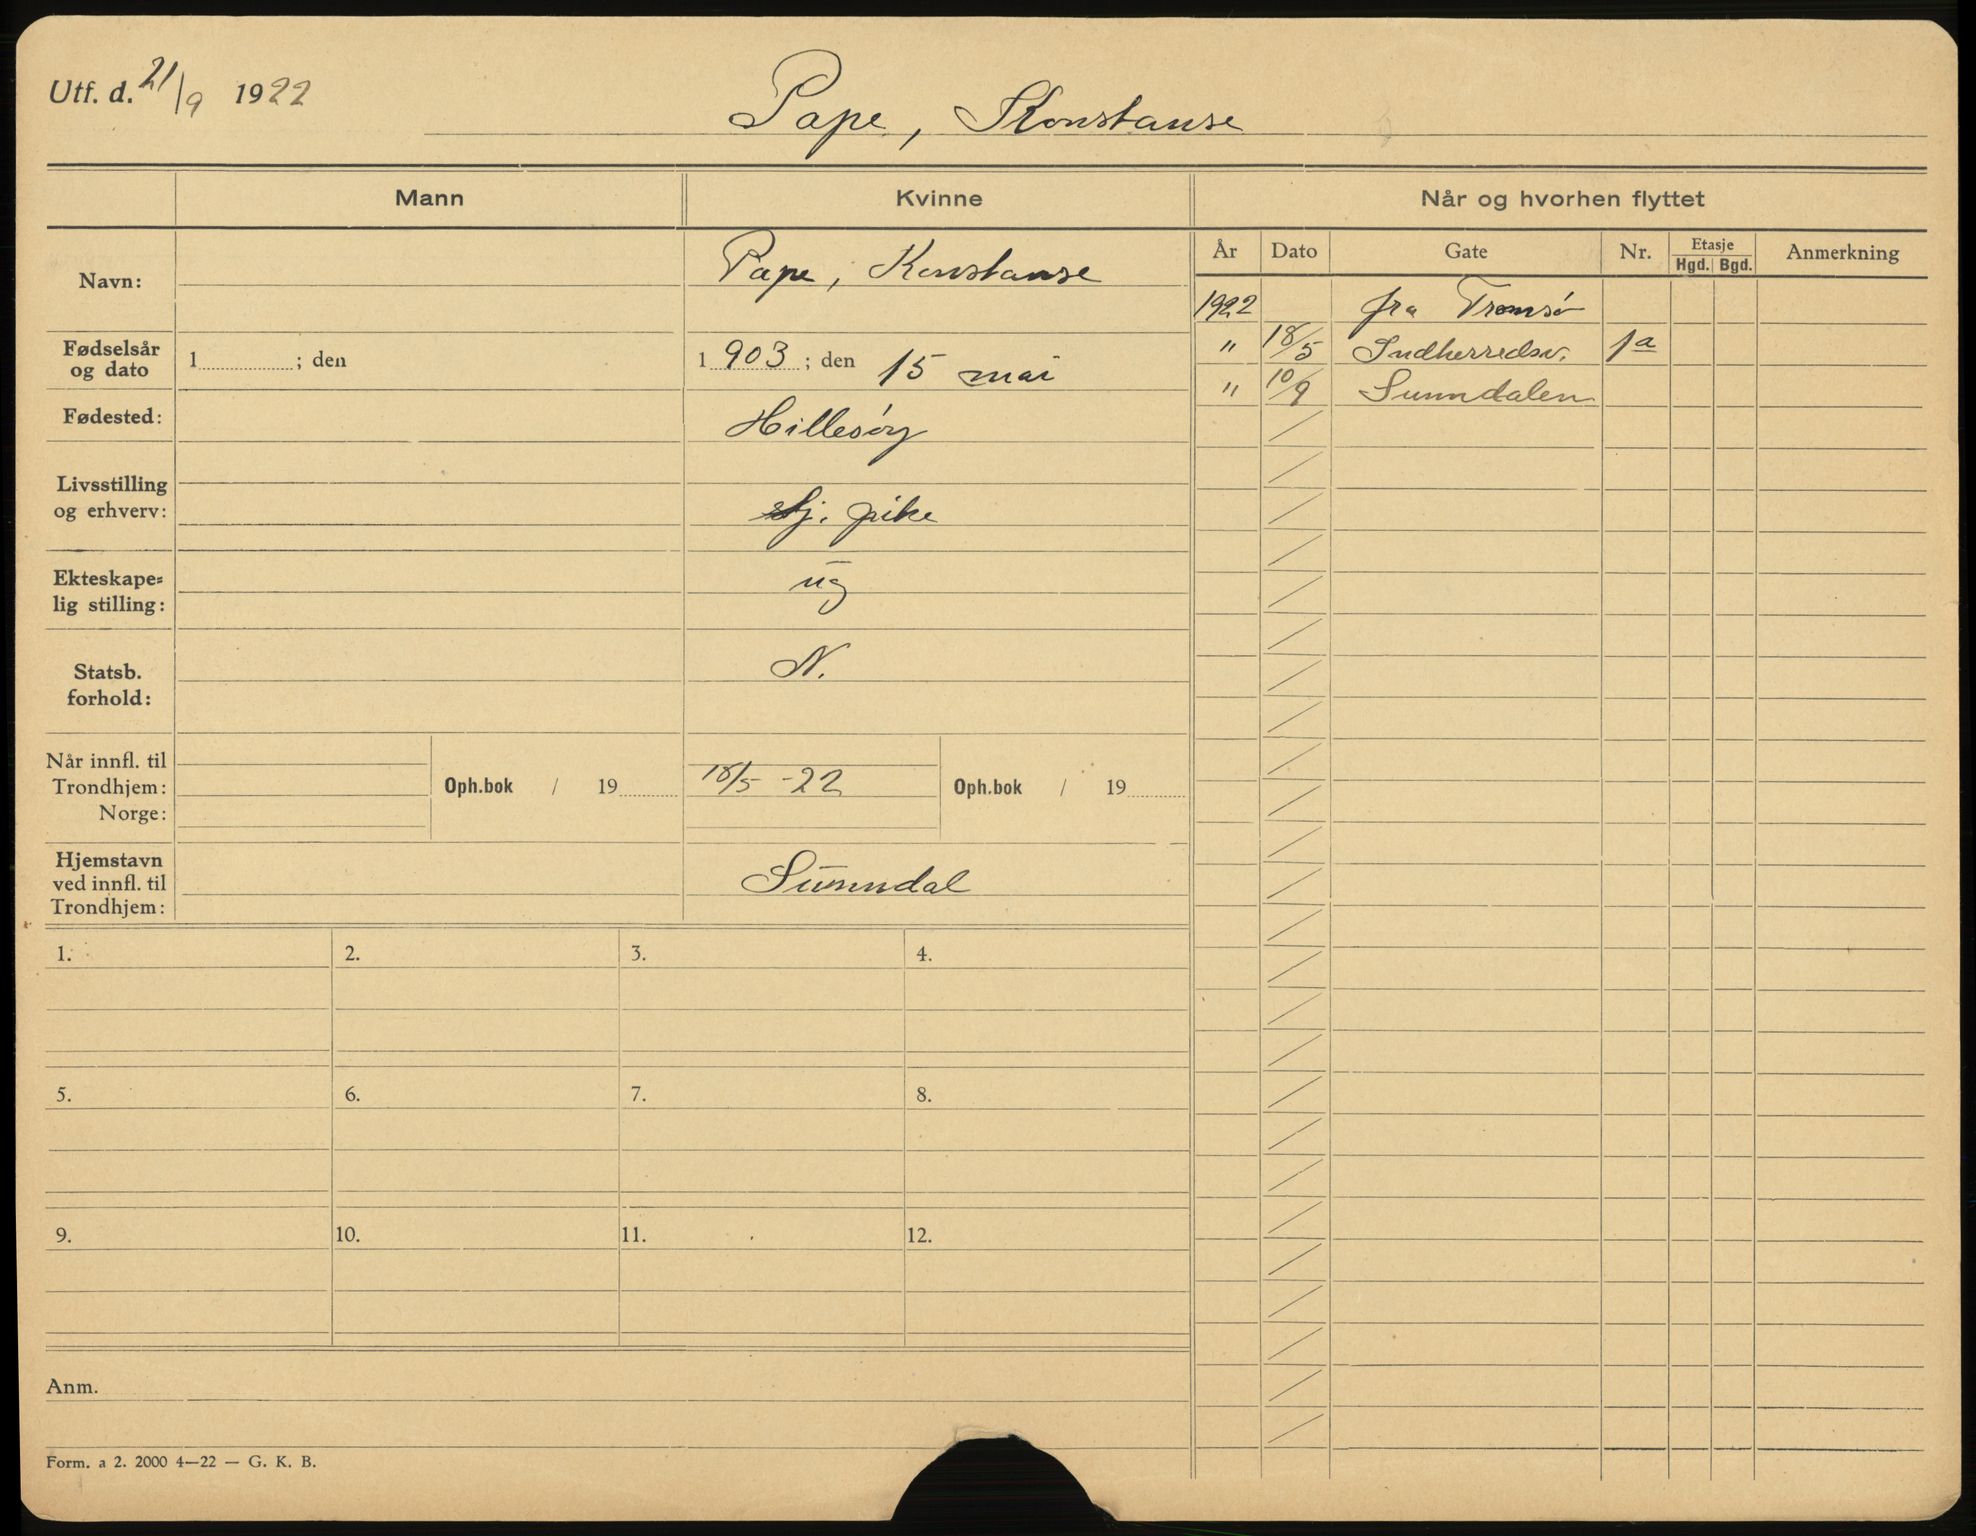 Utf. d. 21/9 1922
Pape, Konstanse
Mann
Kvinne
Når og hvorhen flyttet
År Dato Gate Nr. Etasje Hgd. Bgd. Anmerkning
Navn: Pape, Konstanse
Fødselsår og dato 1 ; den 1 903 ; den 15 mai
Fødested: Hillesøy
Livsstilling og erhverv: tj. pike
Ekteskape=
lig stilling: ug
Statsb. forhold: N.
Når innfl. til
Trondhjem: Oph.bok / 19 18/5 -22 Oph.bok / 19
Norge:
Hjemstavn
ved innfl. til Sunndal
Trondhjem:
1922 fra Tromsø
" 18/5 Indherredsv. 1a
" 10/9 Sunndalen
1. 2. 3. 4.
5. 6. 7. 8.
9. 10. 11. 12.
Anm.
Form. a 2. 2000 4—22 — G. K. B.